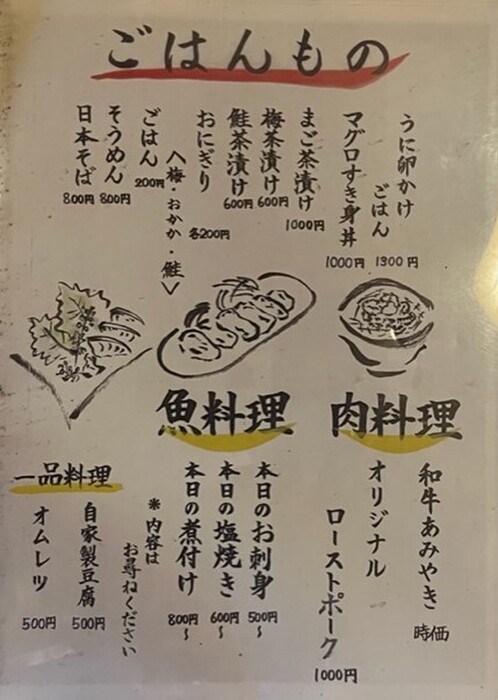 ごはんもの
うに卵かけ
ごはん
1300円
マグロすき身丼
1000円
まご茶漬け
1000円
梅茶漬け
600円
鮭茶漬け
600円
おにぎり
各200円
〈梅・おかか・鮭〉
ごはん
200円
そうめん
800円
日本そば
800円
肉料理
和牛あみやき
時価
オリジナル
ローストポーク
1000円
魚料理
本日のお刺身
500円~
本日の塩焼き
600円~
本日の煮付け
800円~
※内容は
お尋ねください
一品料理
自家製豆腐
500円
オムレツ
500円